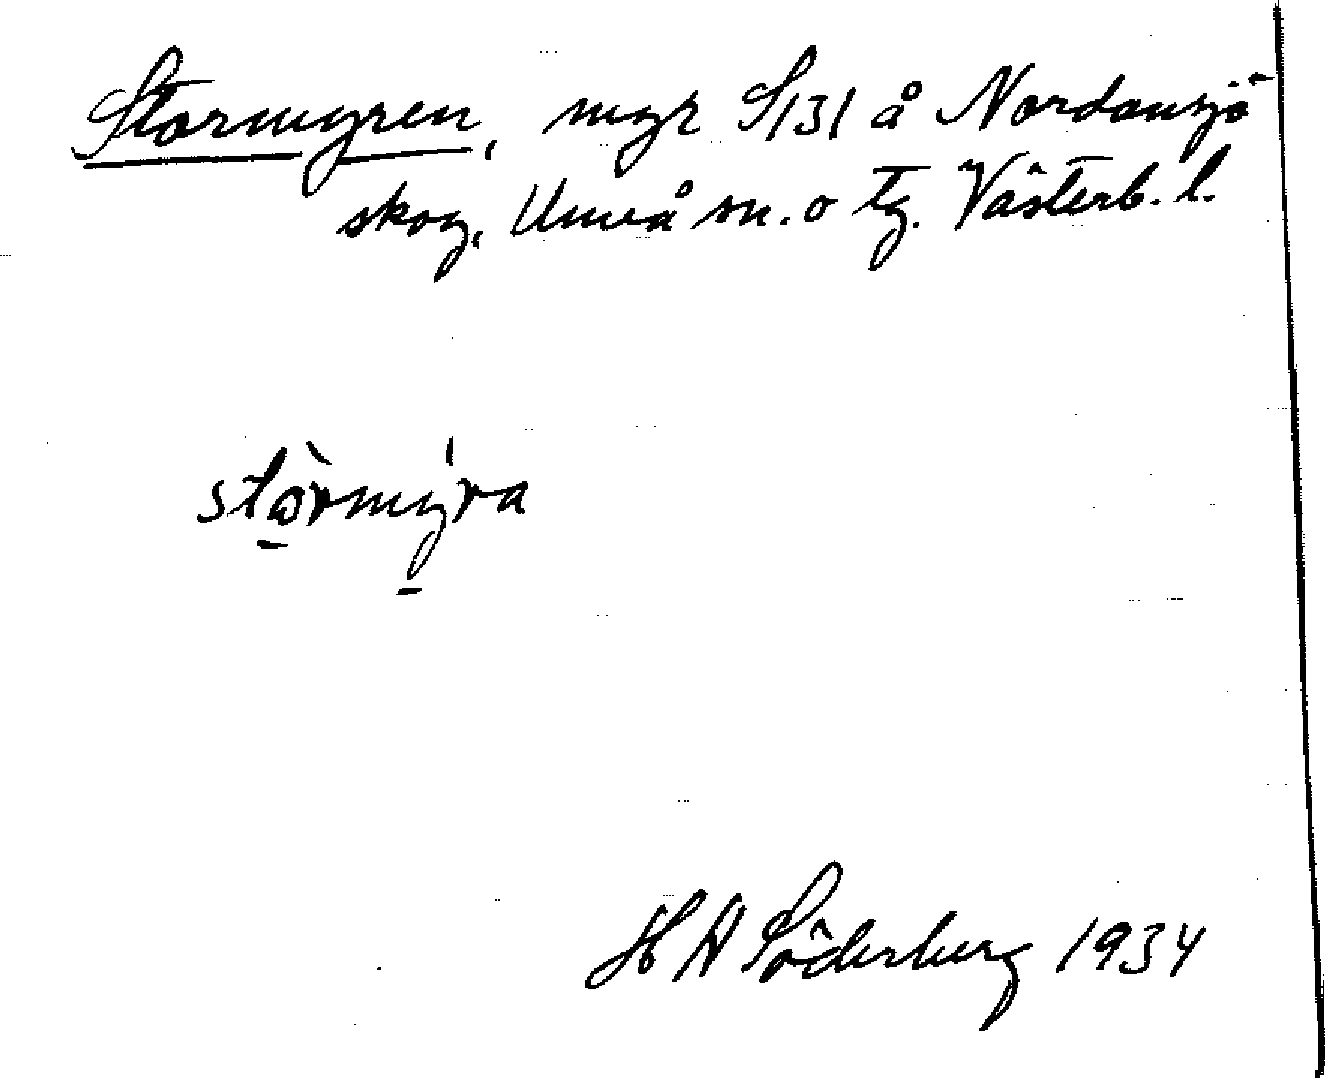 Stormyren, myr S131 å Nordansjö
skog, Umeå sn. o tg. Västerb. l.
stòrmýra
H A Söderberg 1934